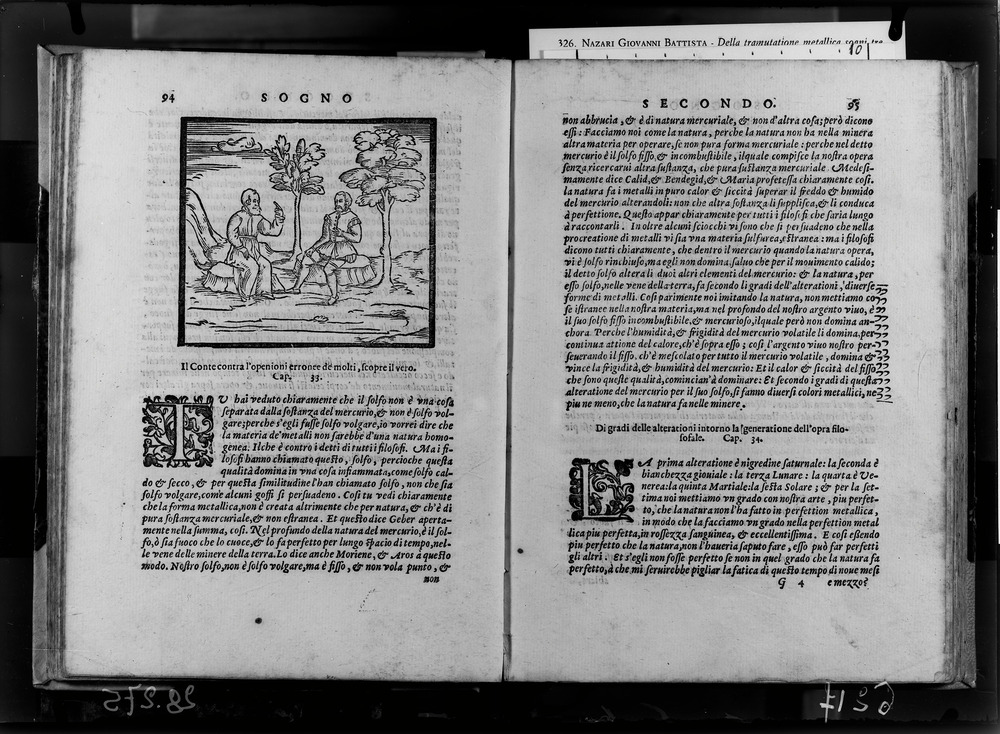 326. NAZARI GIOVANNI BATTISTA - Della tramutatione metallica sogni tre
10
94 SOGNO
Il Conte contra l'openioni erronee de molti, scopre il vero.
Cap. 33.
TV hai veduto chiaramente che il solfo non è vna cosa
separata dalla sostanza del mercurio, & non è solfo vol-
gare; perche s'egli fusse solfo volgare, io vorrei dire che
la materia de' metalli non sarebbe d'una natura homo-
genea. Ilche è contro i detti di tutti i filosofi. Ma i fi-
losofi hanno chiamato questo, solfo, percioche questa
qualità domina in vna cosa infiammata, come solfo cal-
do & secco, & per questa similitudine l'han chiamato solfo, non che sia
solfo volgare, com'e alcuni goffi si persuadeno. Cosi tu vedi chiaramente
che la forma metallica, non è creata altrimente che per natura, & ch'è di
pura sostanza mercuriale, & non estranea. Et questo dice Geber aperta-
mente nella summa, così. Nel profondo della natura del mercurio è il sol-
fo, ò sia fuoco che lo cuoce, & lo fa perfetto per lungo spacio di tempo, nel-
le vene delle minere della terra. Lo dice anche Moriene, & Aros a questo
modo. Nostro solfo, non è solfo volgare, ma è fisso, & non vola punto, &
non
SECONDO. 95
non abbrucia, & è di natura mercuriale, & non d'altra cosa; però dicono
essi: Facciamo noi come la natura, perche la natura non ha nella minera
altra materia per operare, se non pura forma mercuriale: perche nel detto
mercurio è il solfo fisso, & incombustibile, ilquale compisce la nostra opera
senza ricercarui altra sustanza, che pura sustanza mercuriale. Medesi-
mamente dice Calid, & Bendegid, & Maria profetessa chiaramente così.
la natura fa i metalli in puro calor & siccità superar il freddo & humido
del mercurio alterandoli: non che altra sostanza li supplisca, & li conduca
à perfettione. Questo appar chiaramente per tutti i filosofi che saria lungo
à raccontarli. In oltre alcuni sciocchi vi sono che si persuadeno che nella
procreatione di metalli vi sia vna materia sulfurea, estranea: ma i filosofi
dicono tutti chiaramente, che dentro il mercurio quando la natura opera,
vi è solfo rinchiuso, ma egli non domina, saluo che per il mouimento calido;
il detto solfo altera li duoi altri elementi del mercurio: & la natura, per
esso solfo, nelle vene della terra, fa secondo li gradi dell'alterationi, diuerse
forme di metalli. Cosi parimente noi imitando la natura, non mettiamo co-
se istranee nella nostra materia, ma nel profondo del nostro argento viuo, è
il suo solfo fisso incombustibile, & mercurioso, ilquale però non domina an-
chora. Perche l'humidità, & frigidità del mercurio volatile li domina, per
continua attione del calore, ch'è sopra esso; così l'argento viuo nostro per-
seuerando il fisso. ch'è mescolato per tutto il mercurio volatile, domina &
vince la frigidità, & humidità del mercurio: Et il calor & siccità del fisso
che sono queste qualità, comincian'à dominare: Et secondo i gradi di questa
alteratione del mercurio per il suo solfo, si fanno diuersi colori metallici, ne
piu ne meno, che la natura fa nelle minere.
Di gradi delle alterationi intorno la generatione dell'opra filo-
sofale. Cap. 34.
LA prima alteratione è nigredine saturnale: la seconda è
bianchezza giouiale: la terza Lunare: la quarta è Ve-
nerea: la quinta Martiale: la sesta Solare; & per la set-
tima noi mettiamo vn grado con nostra arte, piu perfet-
to, che la natura non l'ha fatto in perfettion metallica,
in modo che la facciamo vn grado nella perfettion metal
lica piu perfetta, in rossezza sanguinea, & eccellentissima. E così essendo
piu perfetto che la natura, non l'haueria saputo fare, esso può far perfetti
gli altri. Et s'egli non fosse perfetto se non in quel grado che la natura fa
perfetto, à che mi seruirebbe pigliar la fatica di questo tempo di noue mesi
G 4 e mezzo?
28.275
6217